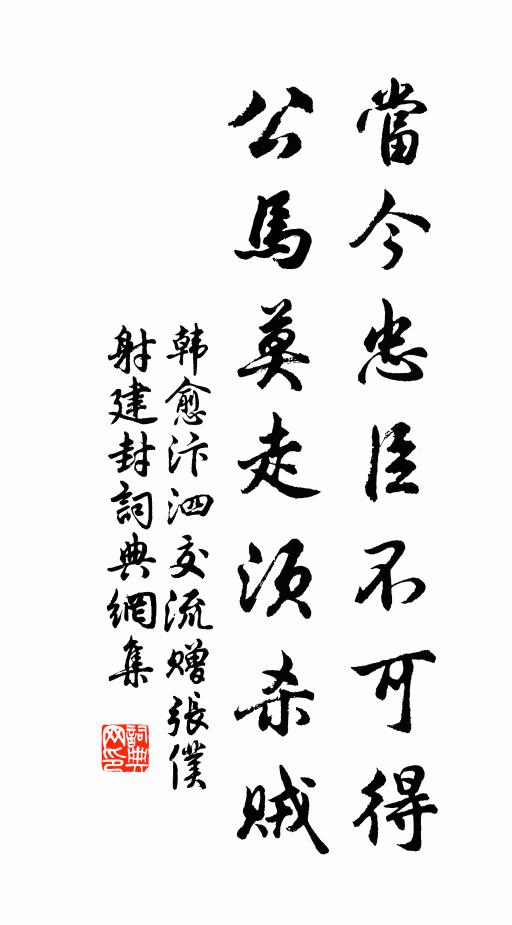 當今忠臣不可得
公馬莫走須杀賊
韩愈汴泗交流赠張僕
射建封詞典網集
詞典
网印